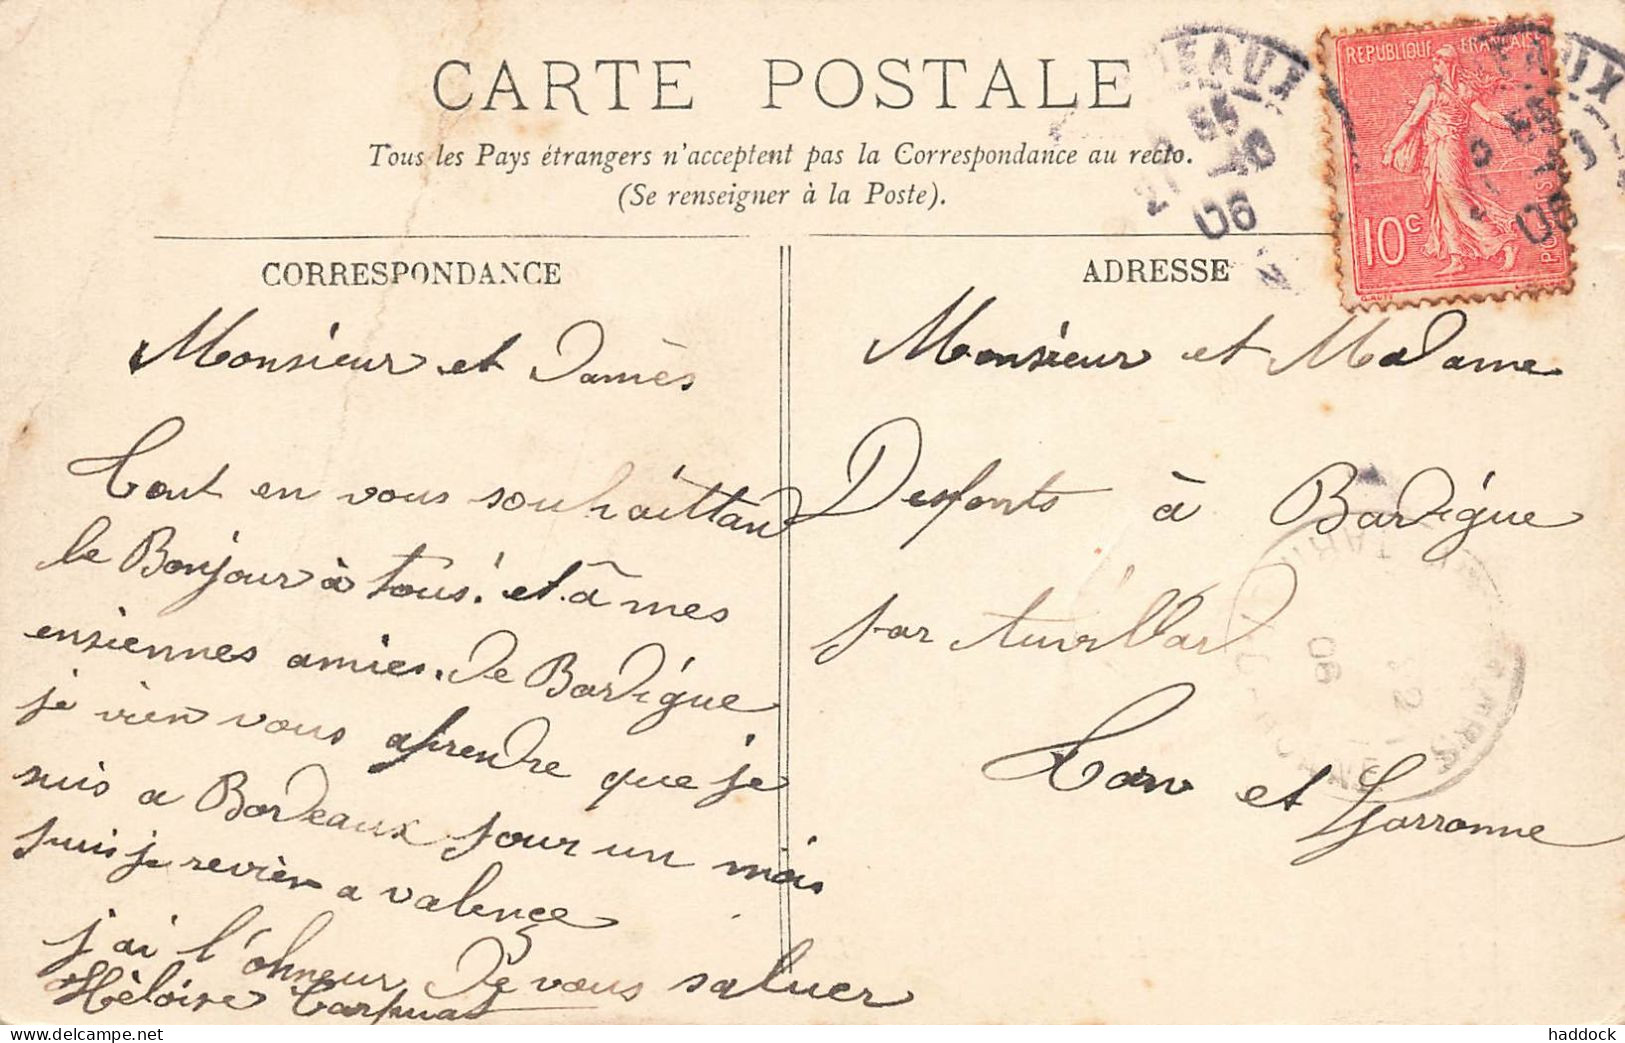 CARTE POSTALE
Tous les Pays étrangers n'acceptent pas la Correspondance au recto.
(Se renseigner à la Poste).
REPUBLIQUE FRANÇAISE
10c
POSTES
06
CORRESPONDANCE
Monsieur et Damès
Tout en vous souhaittant
le Bonjour à tous! et à mes
ensiennes amies. De Bardigue
je vien vous aprendre que je
suis a Bordeaux pour un mois
puis je revièn a valence
j'ai l'ohneur De vous saluer
Hèloise
ADRESSE
Monsieur et Madame
Desfonts à Bardigue
par Auvillar
Tarn et Garronne
haddock